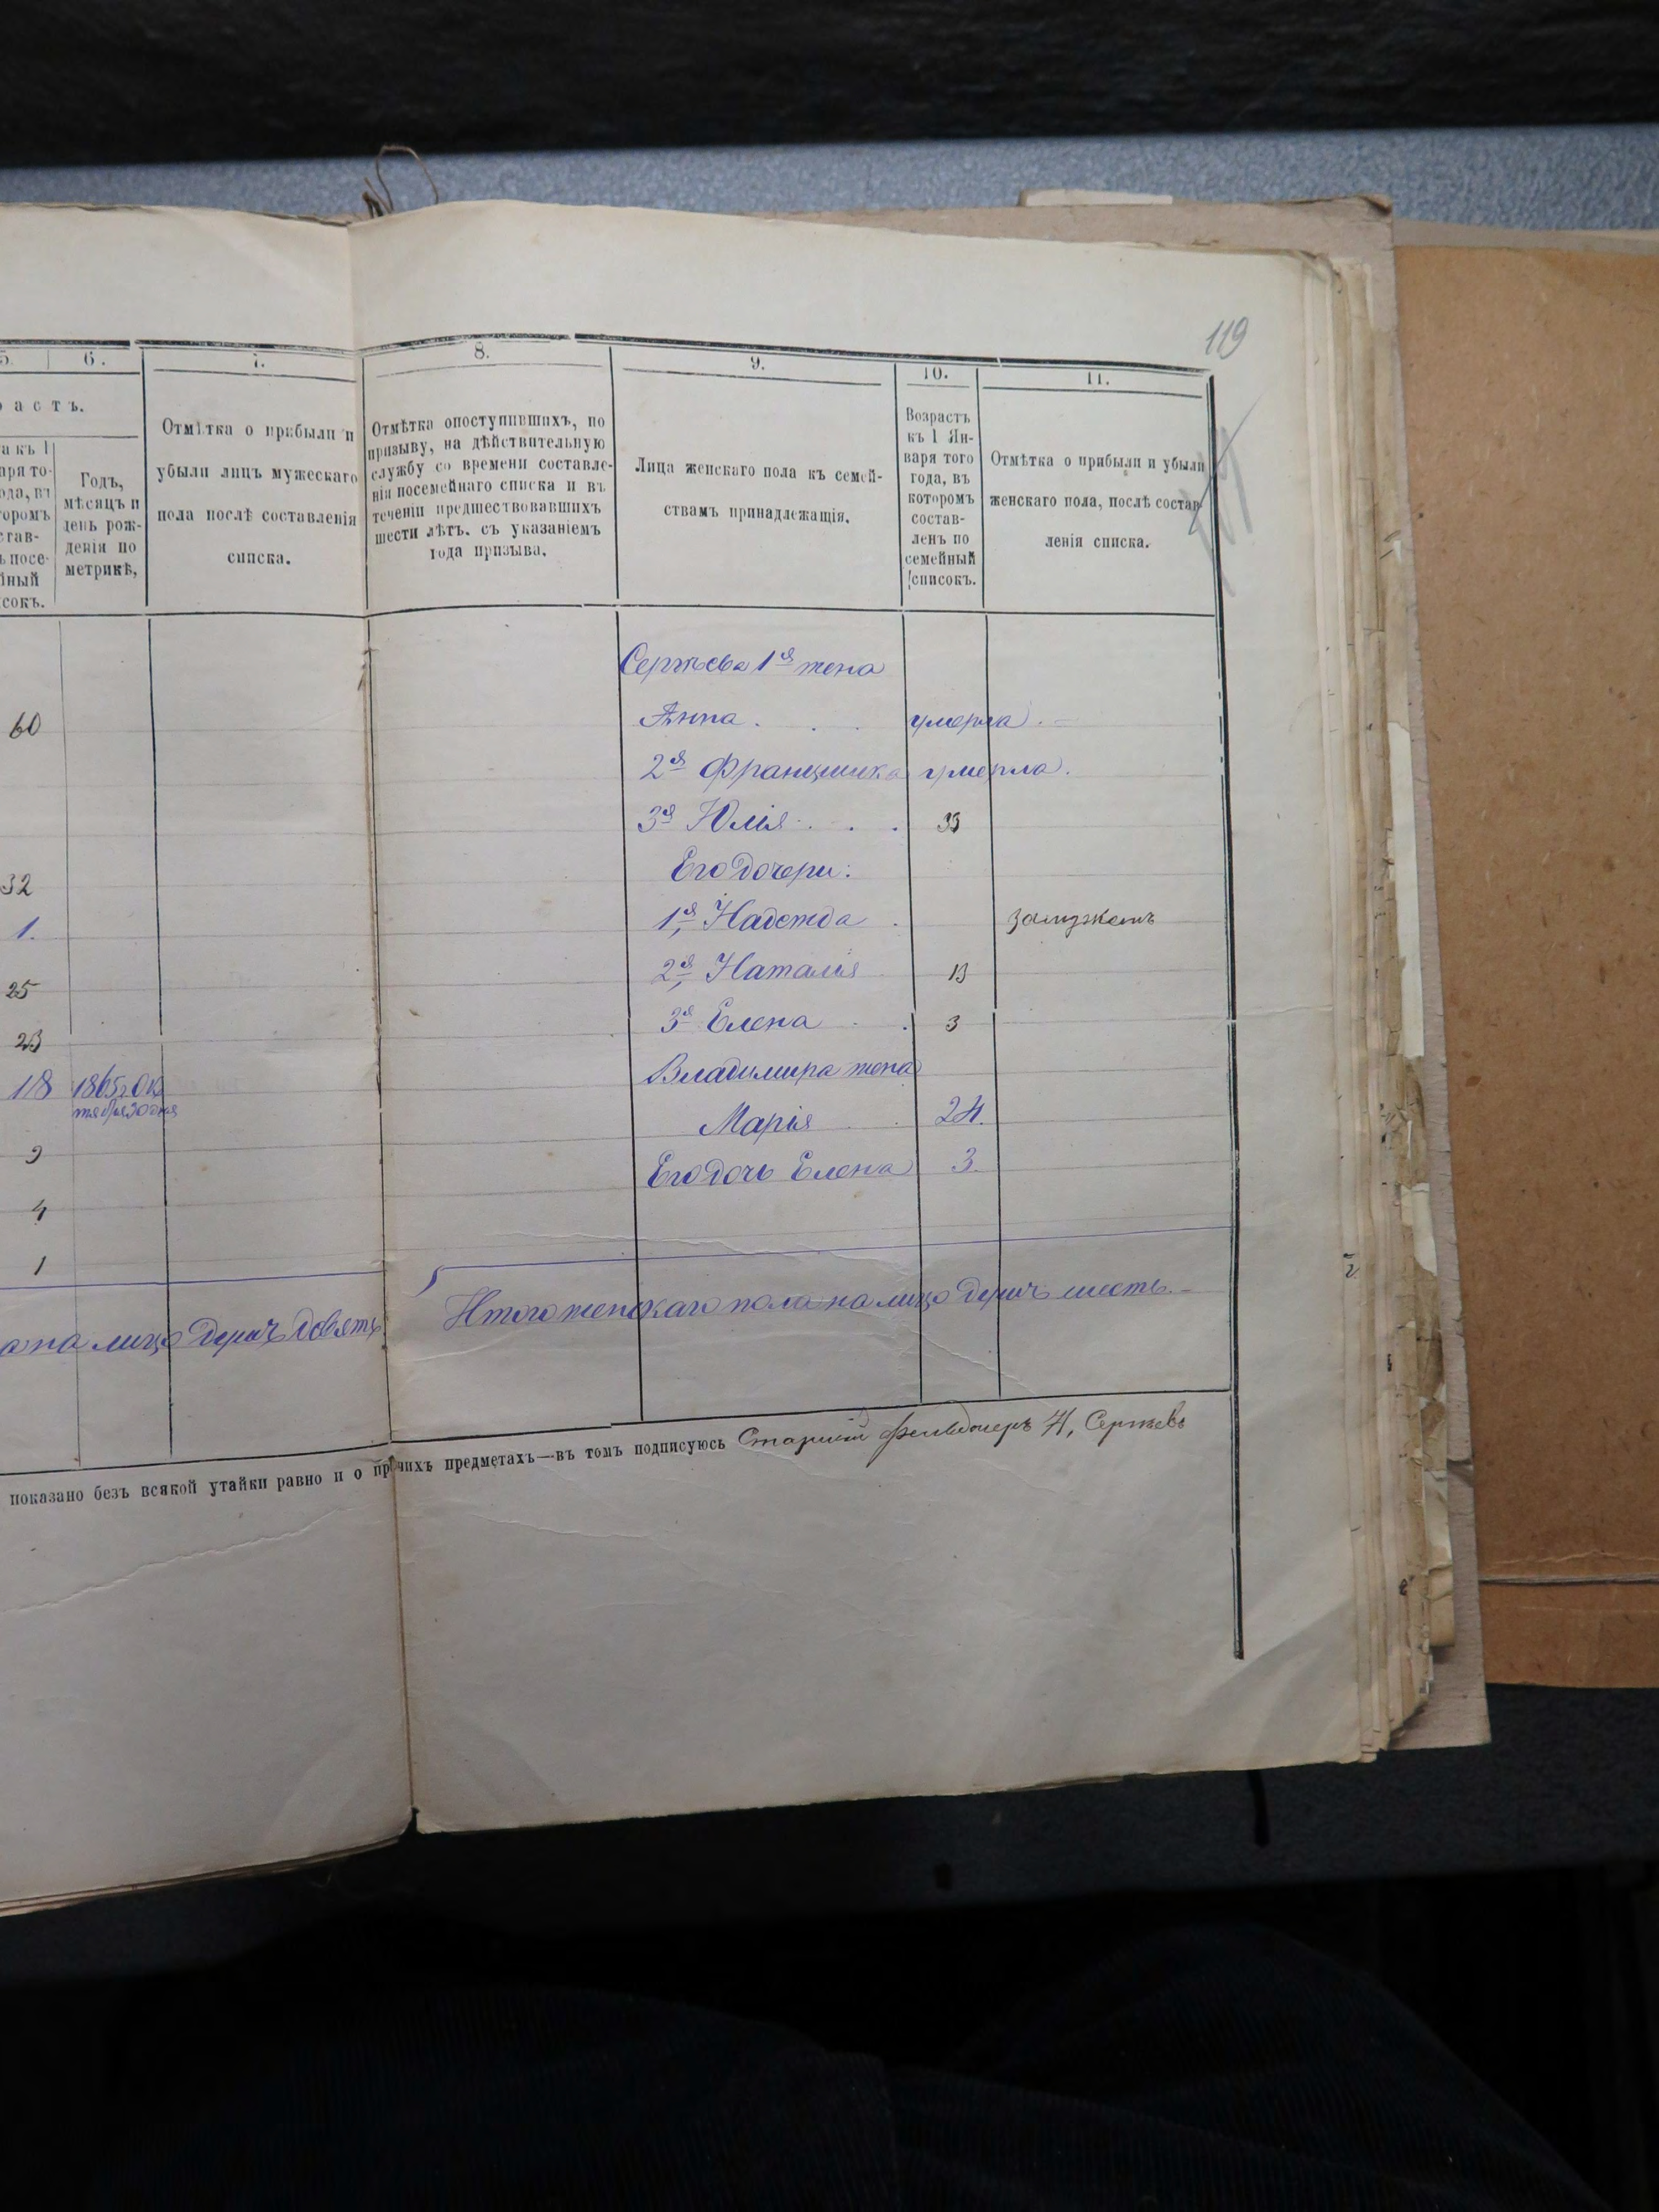 119
5.
6.
7.
8.
9.
10.
11.
астъ.
а къ 1
аря то-
ода, въ
оромъ
став-
ъ посе-
йный
сокъ.
Годъ,
мѣсяцъ и
день рож-
денія по
метрикѣ,
Отмѣтка о прибыли и
убыли лицъ мужескаго
пола послѣ составленія
списка.
Отмѣтка опоступившихъ, по
призыву, на дѣйствительную
службу со времени составле-
нія посемейнаго списка и въ
теченіи предшествовавшихъ
шести лѣтъ. съ указаніемъ
года призыва.
Лица женскаго пола къ семей-
ствамъ принадлежащія.
Возрастъ
къ 1 Ян-
варя того
года, въ
которомъ
состав-
ленъ по
семейный
списокъ.
Отмѣтка о прибыли и убыли
женскаго пола, послѣ состав-
ленія списка.
жена
1я
60
Анна . . . умерла.
2я Францишка умерла.
3я Юлія . . . 33
Его дочери:
32
1. 1я, Надежда . замужемъ
25 2я, Наталія 13
23 3я Елена . . 3
18 1865 г Ок
тября 30 дня
Владимира жена
Марія . . 24.
9 Его дочь Елена 3.
4
1
а на лицо душъ девять
Итого женскаго пола на лицо душъ шесть.
показано безъ всякой утайки равно и о прочихъ предметахъ—въ томъ подписуюсь Старшій фельдшеръ